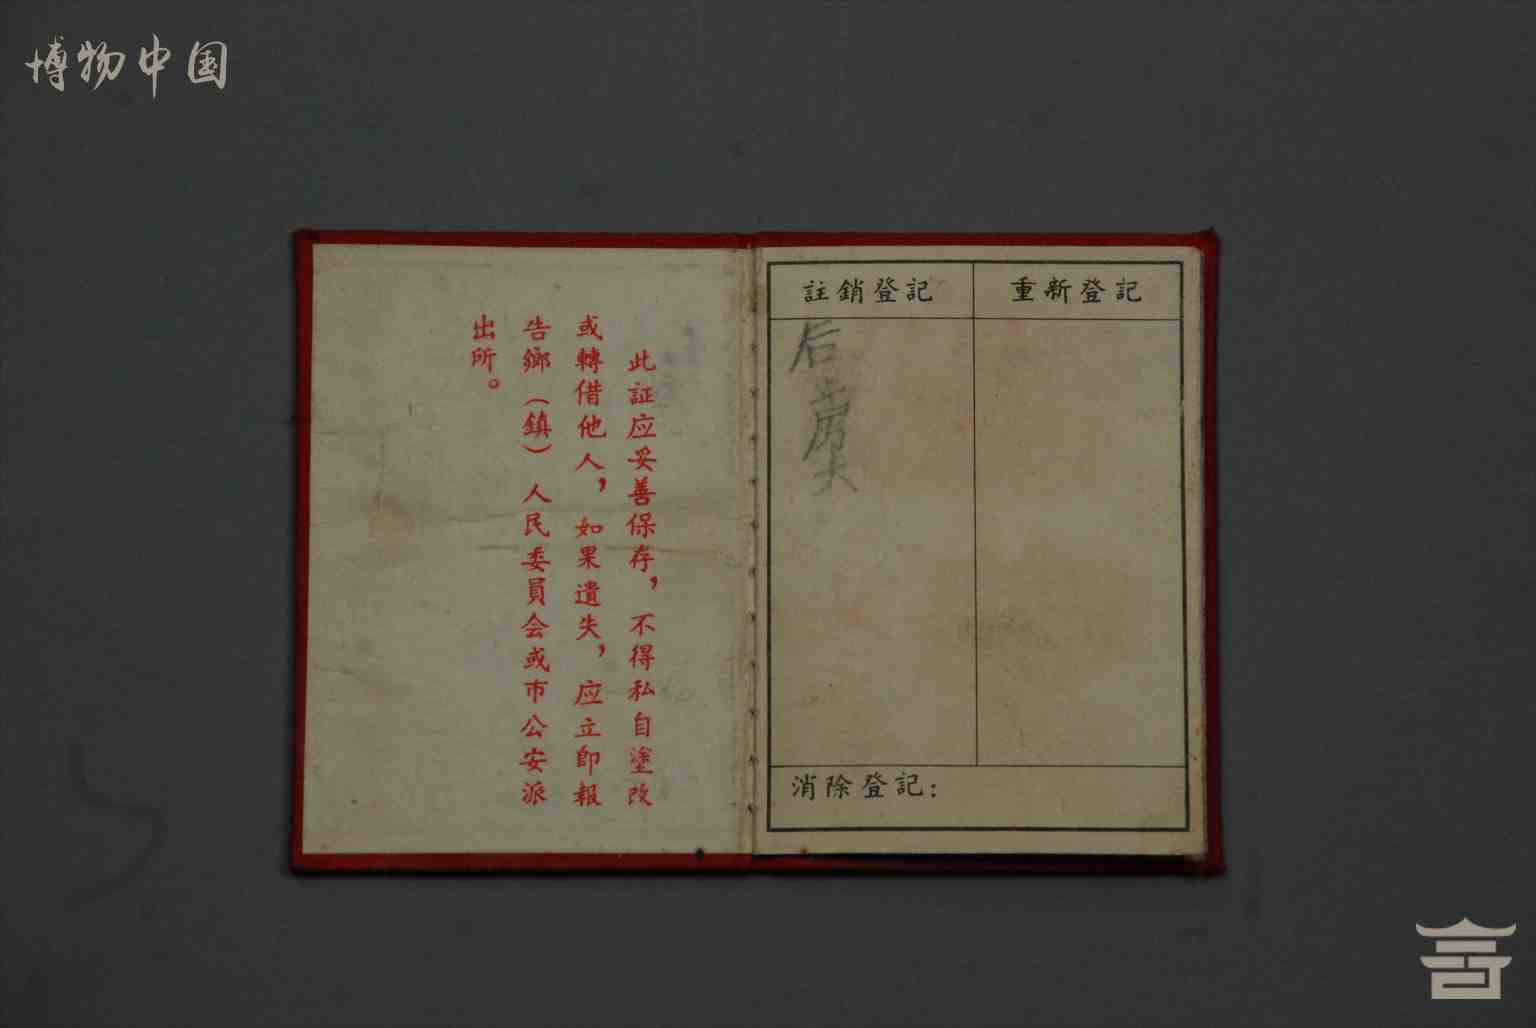 博物中国
此証应妥善保存，不得私自塗改
或轉借他人，如果遺失，应立即報
告鄉（鎮）人民委員会或市公安派
出所。
註銷登記
重新登記
后
房
消除登記：